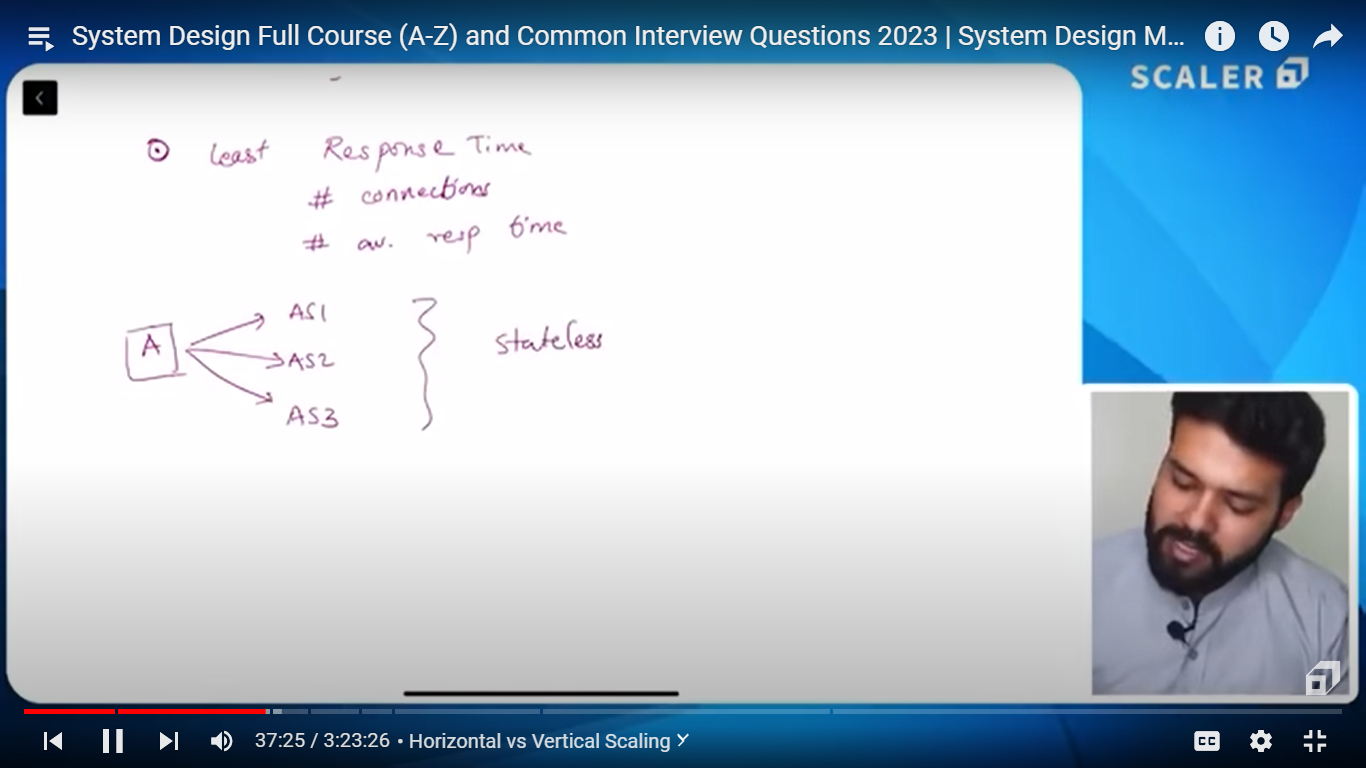 System Design Full Course (A-Z) and Common Interview Questions 2023 | System Design M...
SCALER
Least Response Time
# connections
# av. resp time
A
AS1
AS2
AS3
Stateless
37:25 / 3:23:26 • Horizontal vs Vertical Scaling
CC